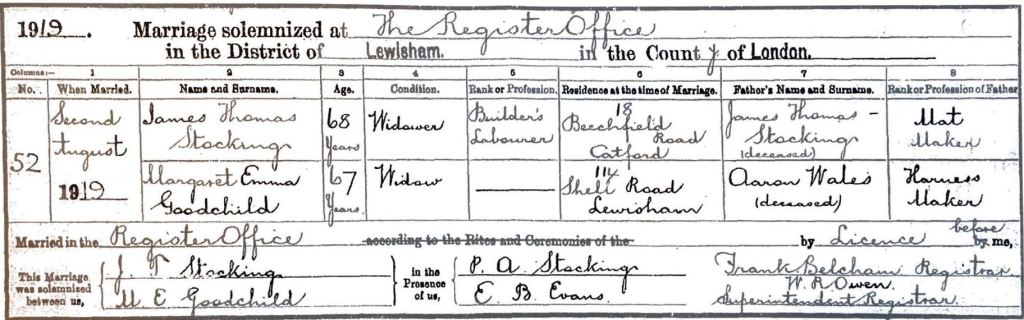 1919. Marriage solemnized at The Register Office
in the District of Lewisham. in the County of London.
Columns:— 1 2 3 4 5 6 7 8
No. When Married. Name and Surname. Age. Condition. Rank or Profession. Residence at the time of Marriage. Father's Name and Surname. Rank or Profession of Father
52 Second August 1919 James Thomas Stocking 68 Years Widower Builder's Labourer 18 Beechfield Road Catford James Thomas — Stocking (deceased) Mat Maker
Margaret Emma Goodchild 67 Years Widow ——— 114 Shell Road Lewisham Aaron Wales (deceased) Harness Maker
Married in the Register Office according to the Rites and Ceremonies of the by Licence before by me,
This Marriage was solemnized between us, J. T Stocking M. E Goodchild in the Presence of us, P. A. Stocking E. B. Evans. Frank Belcham Registrar
W. R Owen.
Superintendent Registrar.